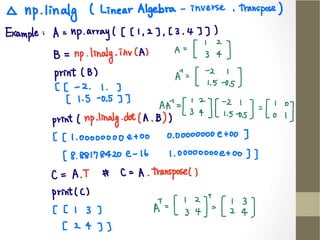 △ np.linalg ( Linear Algebra - inverse , Transpose )
Example : A = np.array ( [ [ 1 , 2 ] , [ 3 . 4 ] ] )
B = np.linalg.inv (A)
A = [ 1 2
3 4 ]
print (B)
A⁻¹ = [ -2 1
1.5 -0.5 ]
[ [ -2. 1. ]
[ 1.5 -0.5 ] ]
AA⁻¹ = [ 1 2
3 4 ] [ -2 1
1.5 -0.5 ] = [ 1 0
0 1 ]
print ( np.linalg.dot ( A . B ) )
[ [ 1.0000000 e+00 0.0000000 e+00 ]
[ 8.8817842 0 e-16 1.0000000 e+00 ] ]
C = A.T # C = A . Transpose( )
print(C)
[ [ 1 3 ]
[ 2 4 ] ]
Aᵀ = [ 1 2
3 4 ]ᵀ = [ 1 3
2 4 ]